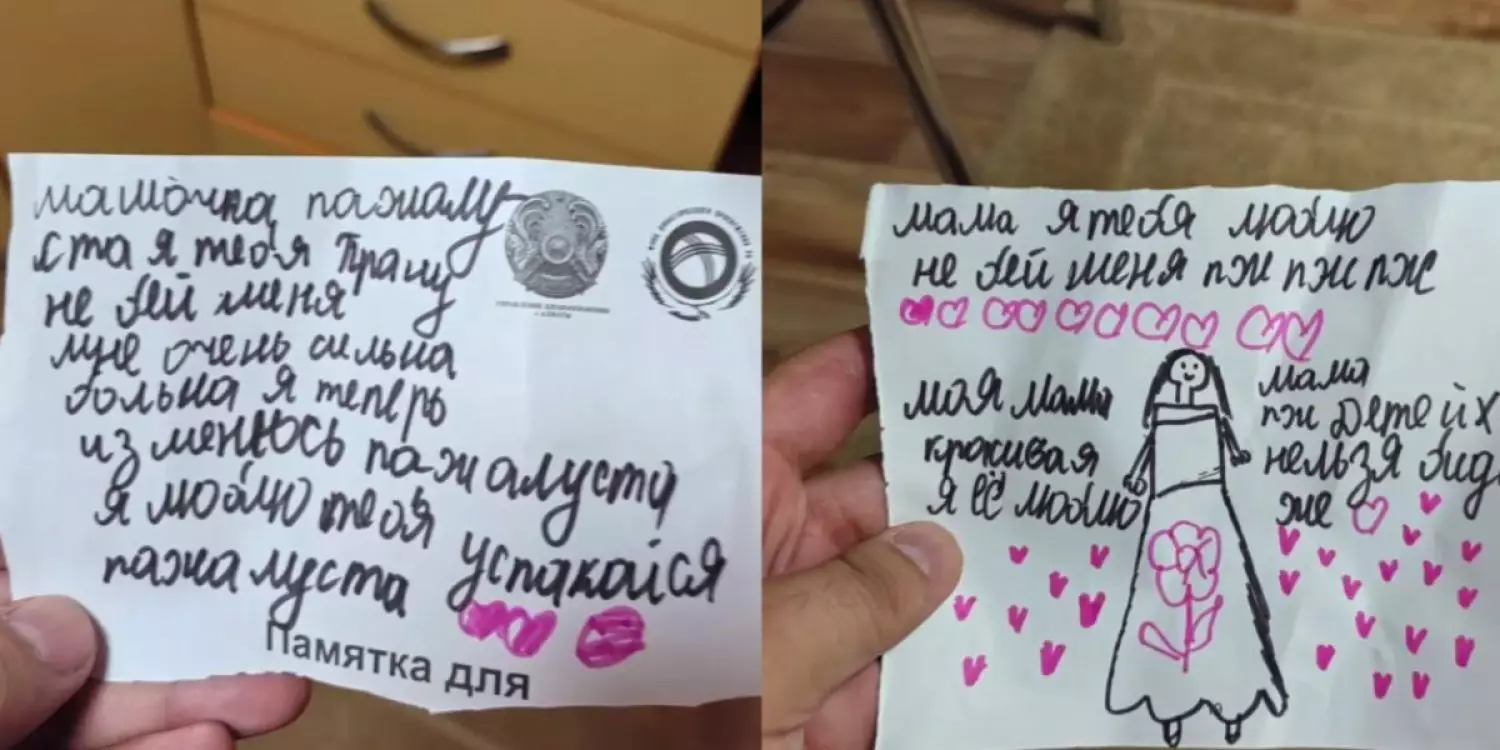 мамочка пажалу
ста я тебя Прашу
не бей меня
мне очень сильна
больна я теперь
изменюсь пажалуста
я люблю тебя успакойся
пажалуста
Памятка для
мама я тебя люблю
не бей меня пж пж пж
моя мама
красивая
я её люблю
мама
пж детей их
нельзя бид
же